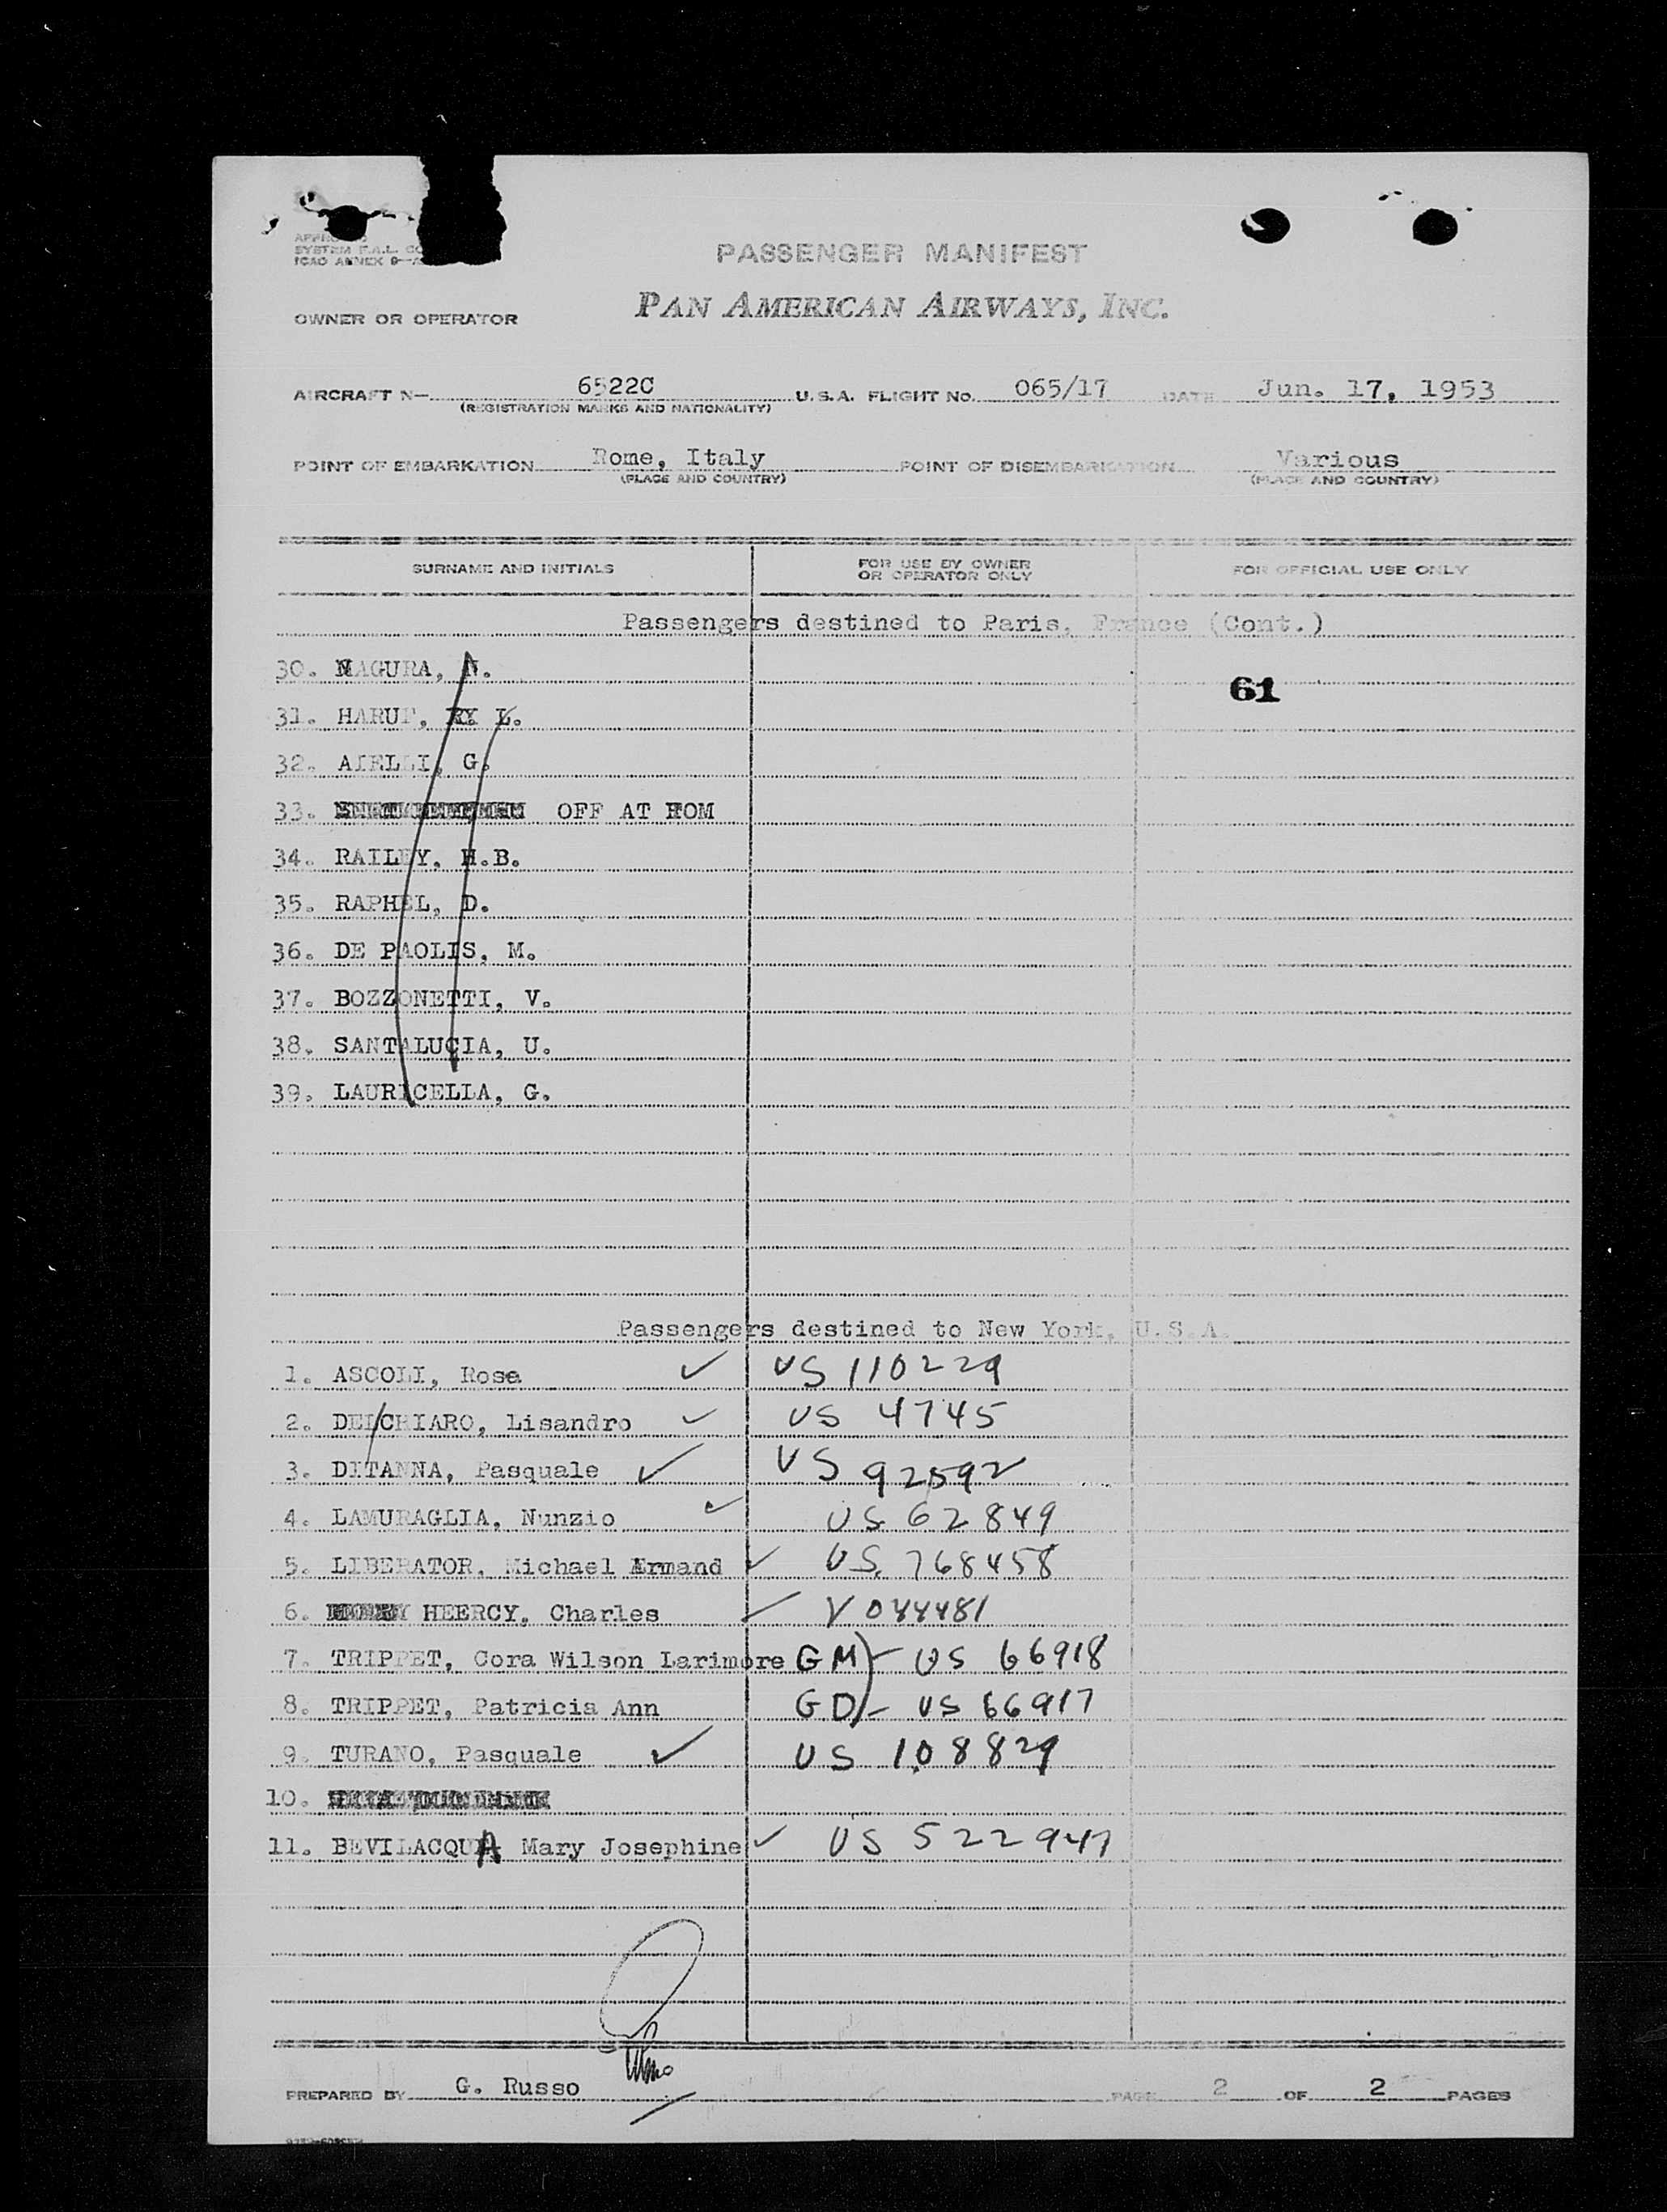 SYSTEM F.A.L.
ICAO ANNEX 9
PASSENGER MANIFEST
OWNER OR OPERATOR PAN AMERICAN AIRWAYS, INC.
AIRCRAFT N— 6522C U.S.A. FLIGHT NO. 065/17 DATE Jun. 17, 1953
(REGISTRATION MARKS AND NATIONALITY)
POINT OF EMBARKATION Rome, Italy POINT OF DISEMBARKATION Various
(PLACE AND COUNTRY) (PLACE AND COUNTRY)
SURNAME AND INITIALS FOR USE BY OWNER OR OPERATOR ONLY FOR OFFICIAL USE ONLY
Passengers destined to Paris, France (Cont.)
30. MAGURA, N.
61
31. HARUT, L.
32. AIELLI, G.
33. OFF AT ROM
34. RAILEY, H.B.
35. RAPHEL, D.
36. DE PAOLIS, M.
37. BOZZONETTI, V.
38. SANTALUCIA, U.
39. LAURICELLA, G.
Passengers destined to New York, U.S.A.
1. ASCOLI, Rosa ✓ US 110229
2. DEL/CHIARO, Lisandro ✓ US 4745
3. DITANNA, Pasquale ✓ US 92592
4. LAMURAGLIA, Nunzio ✓ US 62849
5. LIBERATOR, Michael Armand ✓ US 768458
6. HEERCY, Charles ✓ V 044481
7. TRIPPET, Cora Wilson Larimore GM) - US 66918
8. TRIPPET, Patricia Ann GD) - US 66917
9. TURANO, Pasquale ✓ US 108829
10.
11. BEVILACQUA Mary Josephine ✓ US 522947
PREPARED BY G. Russo PAGE 2 OF 2 PAGES